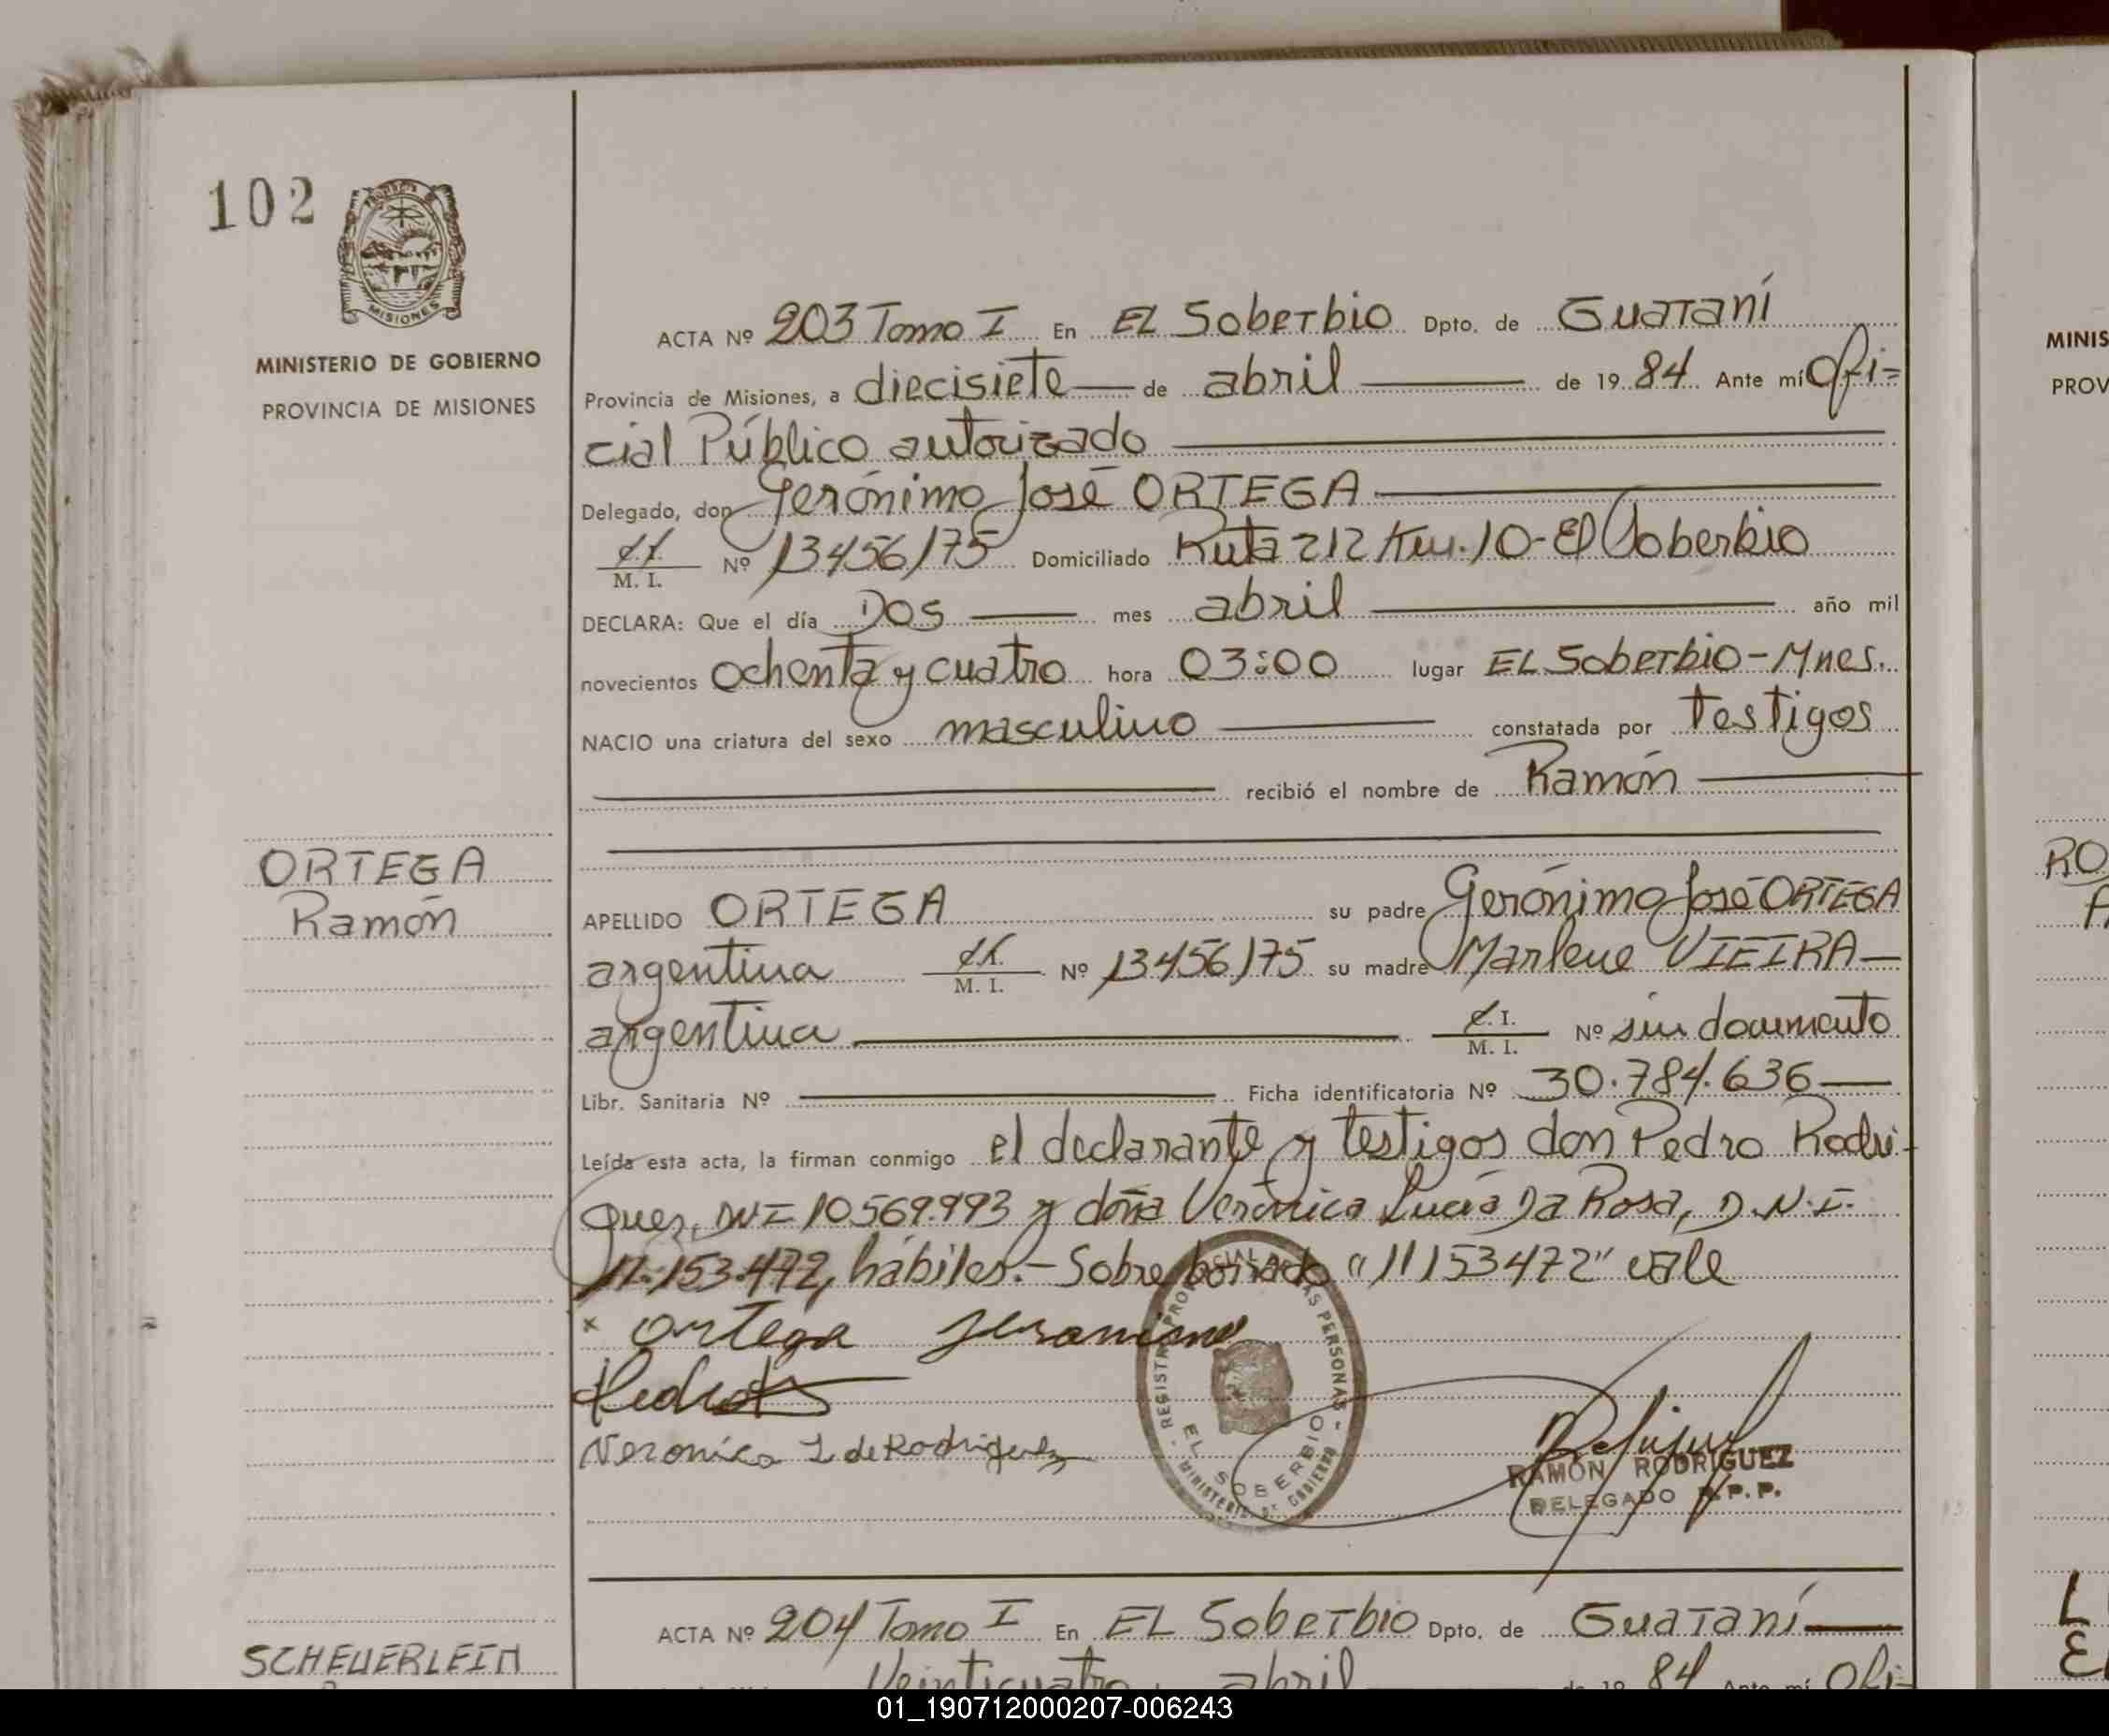 102
MISIONES
MINISTERIO DE GOBIERNO
PROVINCIA DE MISIONES
ACTA Nº 203 Tomo I En EL Soberbio Dpto. de Guaraní
Provincia de Misiones, a diecisiete de abril de 1984 Ante mí Ofi=
cial Público autorizado
Delegado, don Gerónimo José ORTEGA
M. I. Nº 13456175 Domiciliado Ruta 212 Km. 10 - El Soberbio
DECLARA: Que el día Dos mes abril año mil
novecientos ochenta y cuatro hora 03:00 lugar EL Soberbio - Mnes.
NACIO una criatura del sexo masculino constatada por testigos
recibió el nombre de Ramón
ORTEGA
Ramón
APELLIDO ORTEGA su padre Gerónimo José ORTEGA
argentina M. I. Nº 13456175 su madre Marlene VIEIRA
argentina C.I. M. I. Nº sin documento
Libr. Sanitaria Nº Ficha identificatoria Nº 30.784.636
Leída esta acta, la firman conmigo el declarante y testigos don Pedro Rodri-
guez, DNI 10.569.993 y doña Verónica Lucía Da Rosa, D.N.I.
11.153.472, hábiles.- Sobre borrado "11153472" vale
x Ortega Jeronimo
Pedro
Veronica L de Rodriguez
REGISTRO PROVINCIAL DE LAS PERSONAS
EL SOBERBIO
MINISTERIO DE GOBIERNO
RAMÓN RODRIGUEZ
DELEGADO R.P.P.
ACTA Nº 204 Tomo I En EL Soberbio Dpto. de Guaraní
SCHEUERLEIN
Veinticuatro abril de 1984 Ante mí Ofi-
MINIS
PROV
RO
01_190712000207-006243